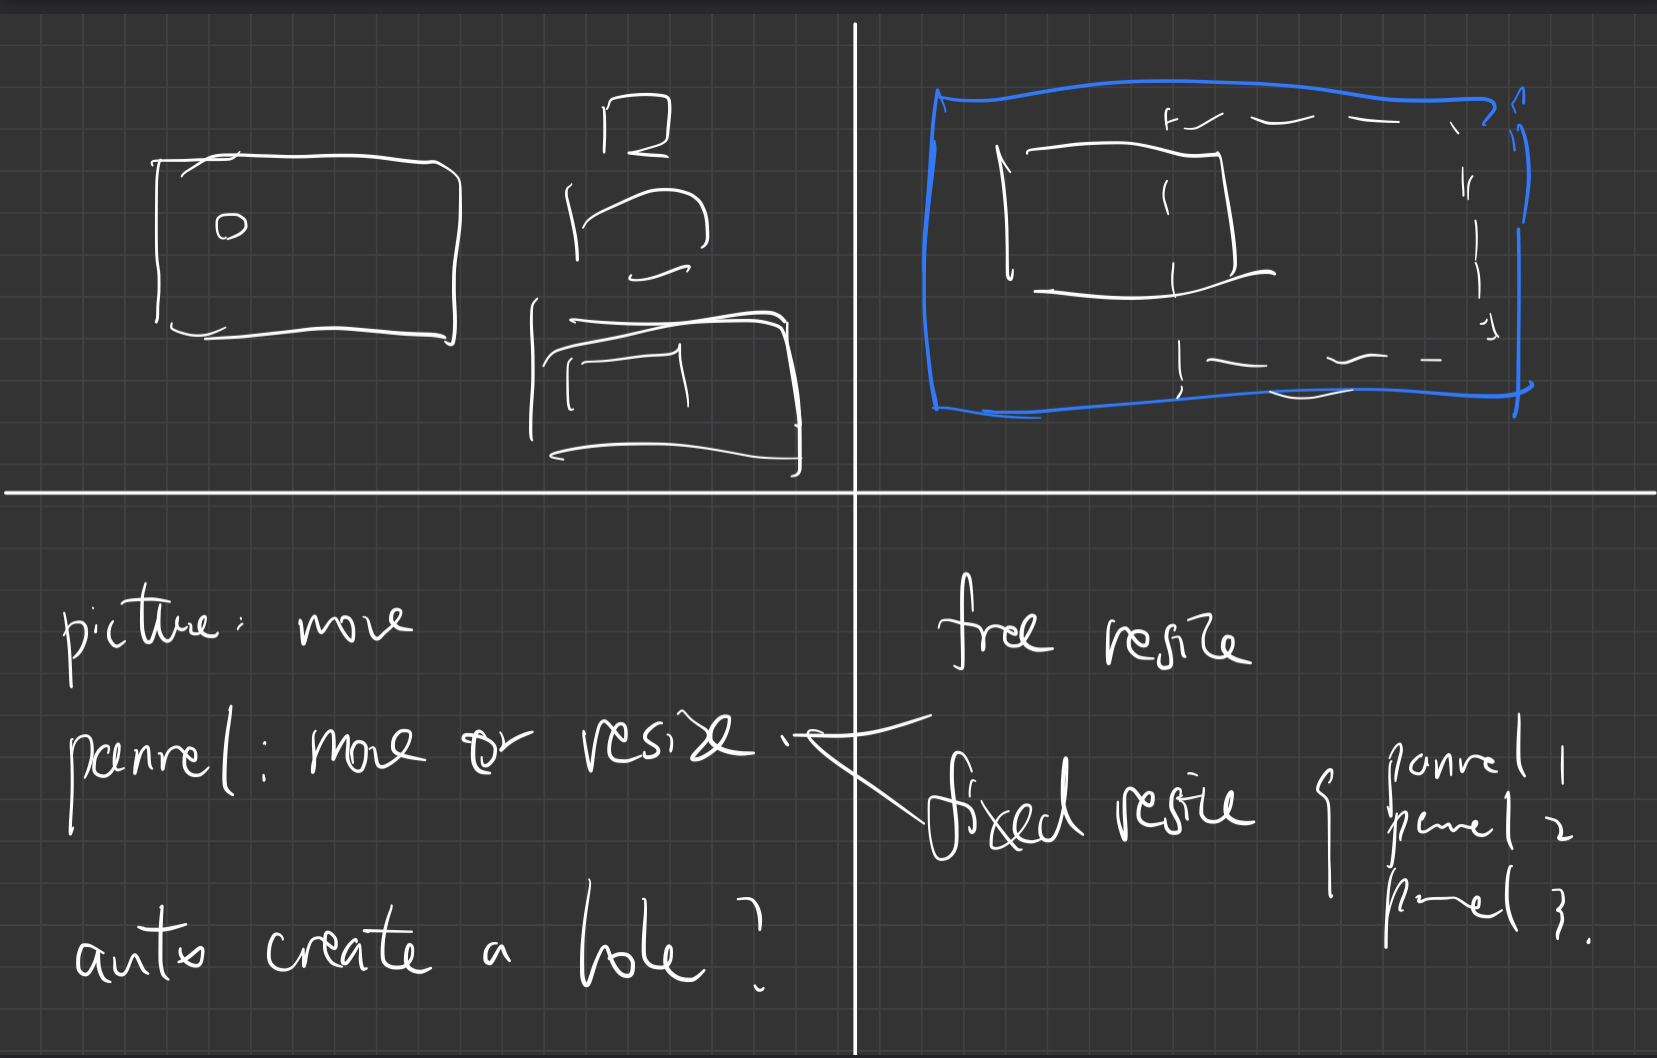 picture: move
pannel: move or resize.
auto create a hole?
free resize
fixed resize
pannel 1
pannel 2
pannel 3.